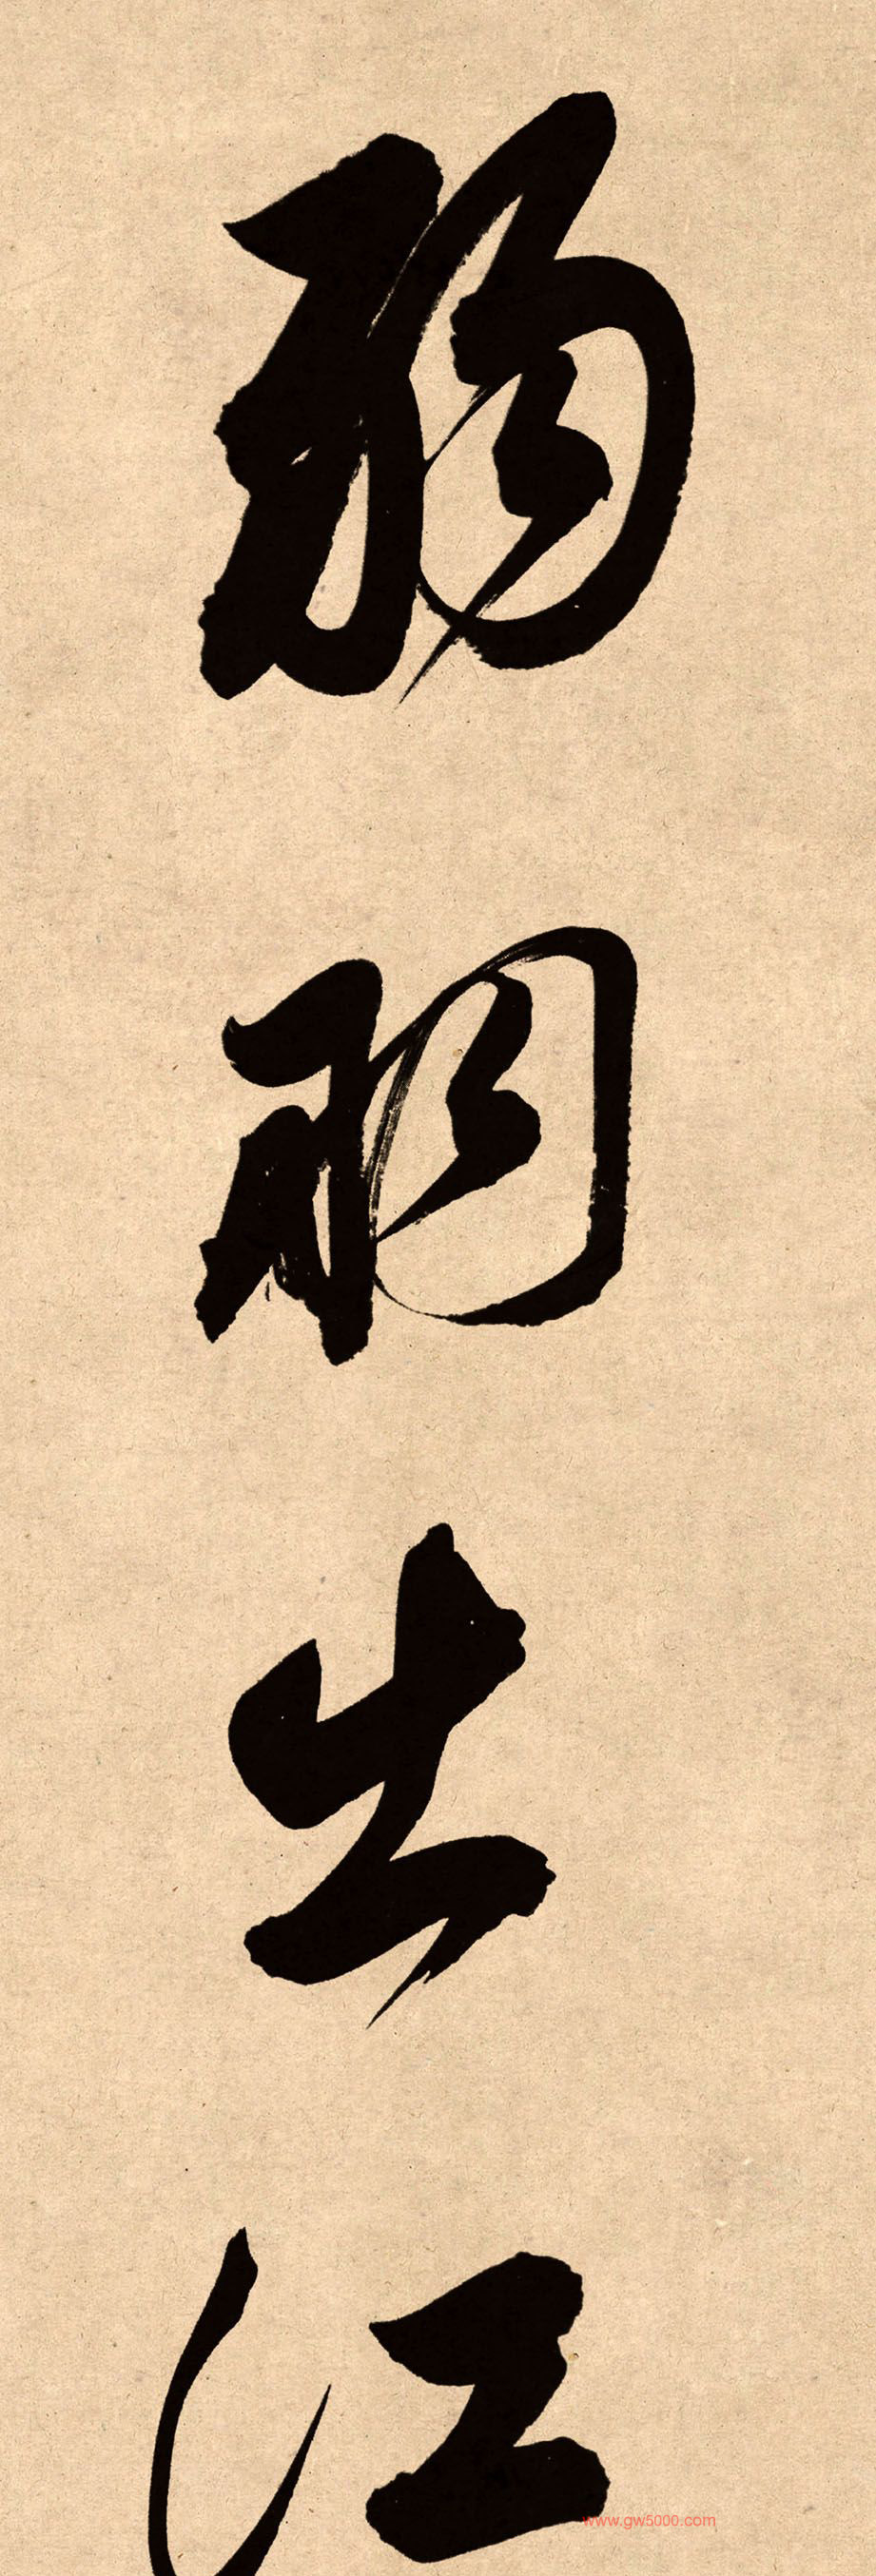 弱羽出江
www.gw5000.com